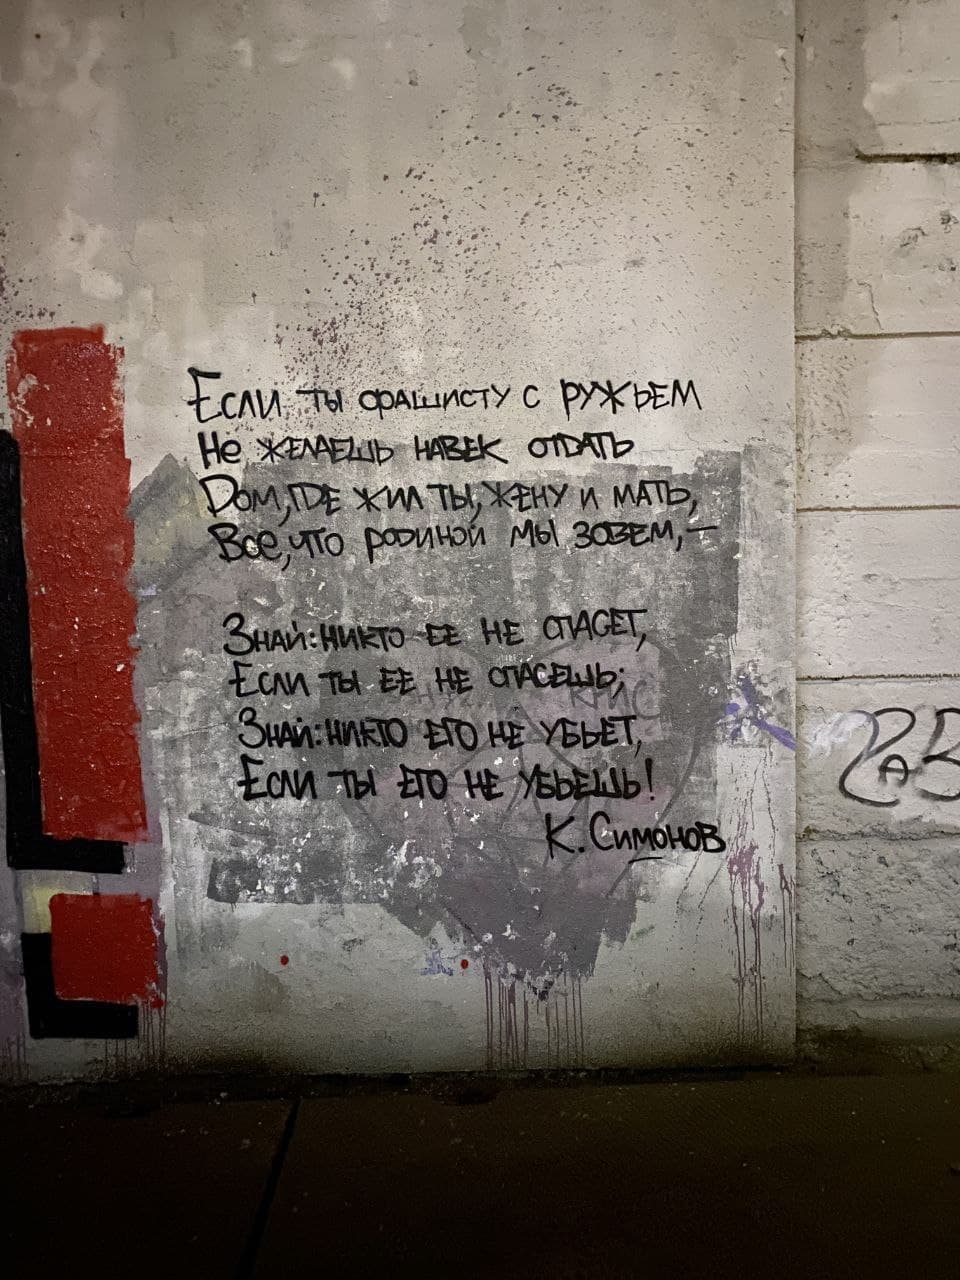 Если ты фашисту с ружьем
Не желаешь навек отдать
Дом, где жил ты, жену и мать,
Все, что родиной мы зовем, —
Знай: никто ее не спасет,
Если ты ее не спасешь;
Знай: никто его не убьет,
Если ты его не убьешь!
К. Симонов